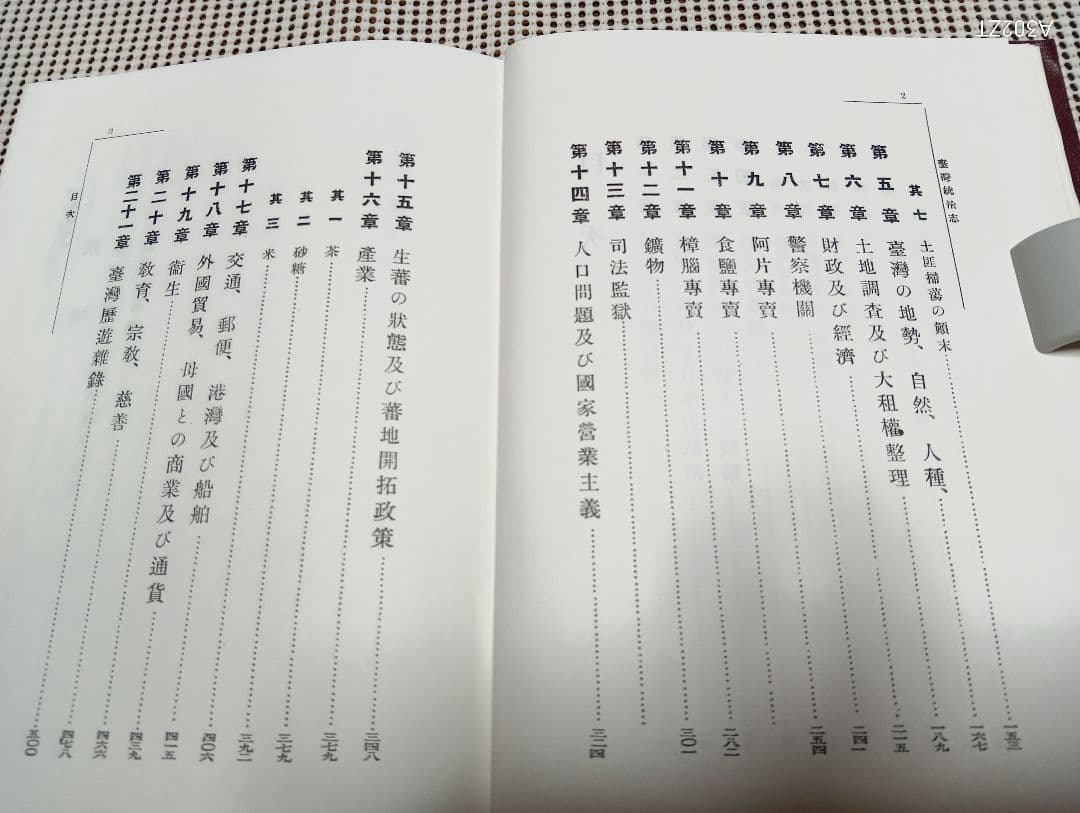 A302ZT
2
臺灣統治志
其七 土匪掃蕩の顚末 一五三
第五章 臺灣の地勢、自然、人種、 一六七
第六章 土地調査及び大租權整理 一八九
第七章 財政及び經濟 二一五
第八章 警察機關 二四一
第九章 阿片專賣 二五四
第十章 食鹽專賣
第十一章 樟腦專賣 二八二
第十二章 鑛物 三〇一
第十三章 司法監獄
第十四章 人口問題及び國家營業主義 三二四
第十五章 生蕃の狀態及び蕃地開拓政策 三四八
第十六章 產業 三七九
其一 茶 三七九
其二 砂糖 三九二
其三 米 四〇六
第十七章 交通、郵便、港灣及び船舶 四一五
第十八章 外國貿易、母國との商業及び通貨 四三九
第十九章 衞生 四六六
第二十章 敎育、宗敎、慈善 四七八
第二十一章 臺灣歷遊雜錄 五〇〇
目次
3